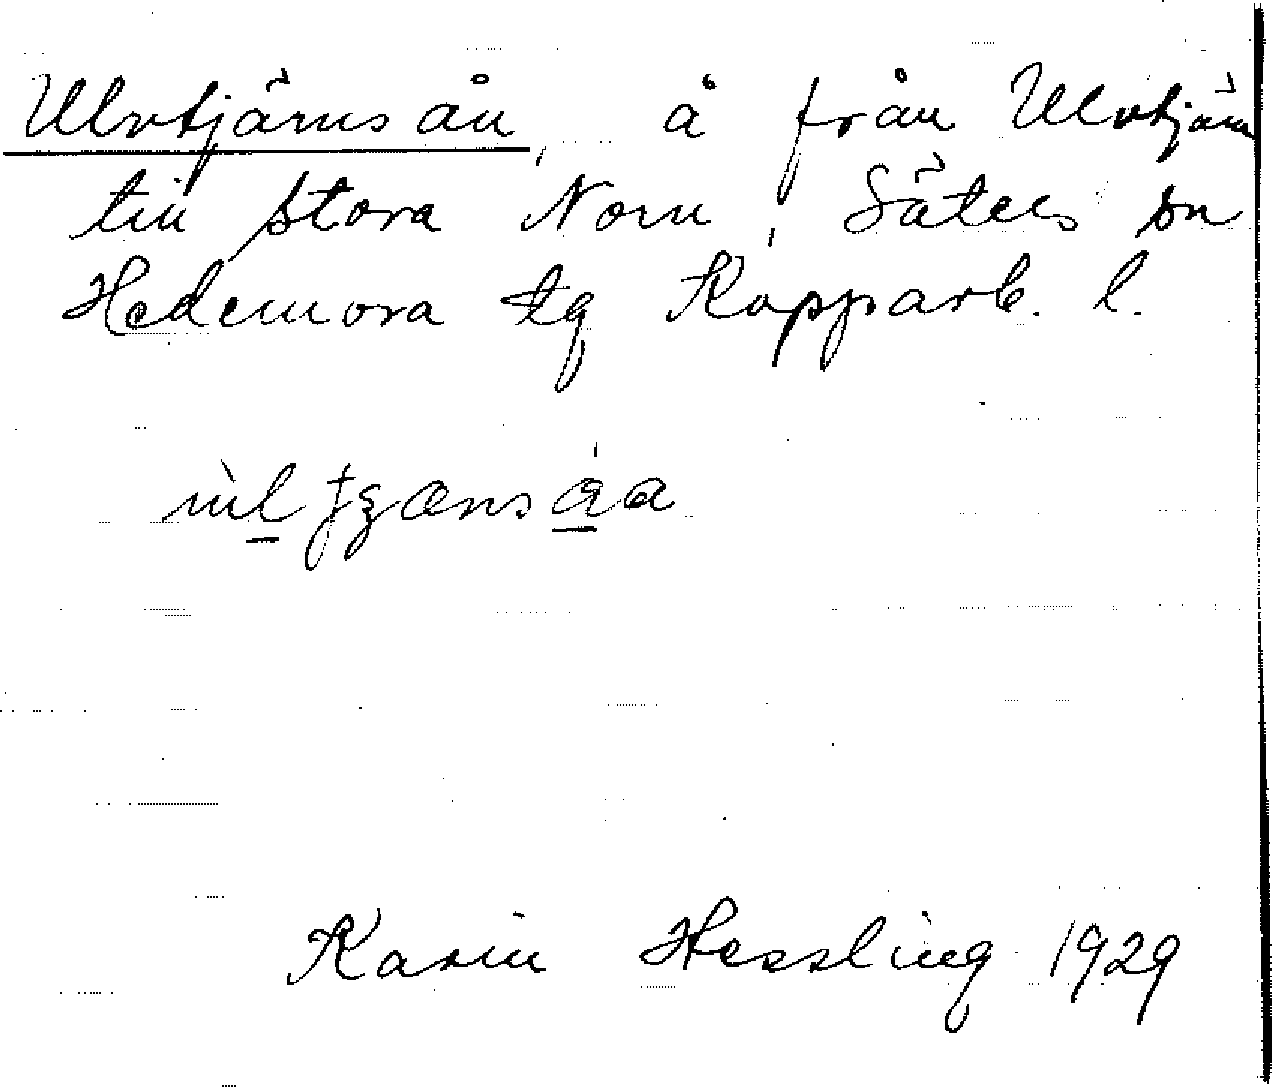 Ulvtjärnsån, å från Ulvtjärn
till Stora Norn, Säters sn
Hedemora tg Kopparb. l.
Karin Hessling 1929